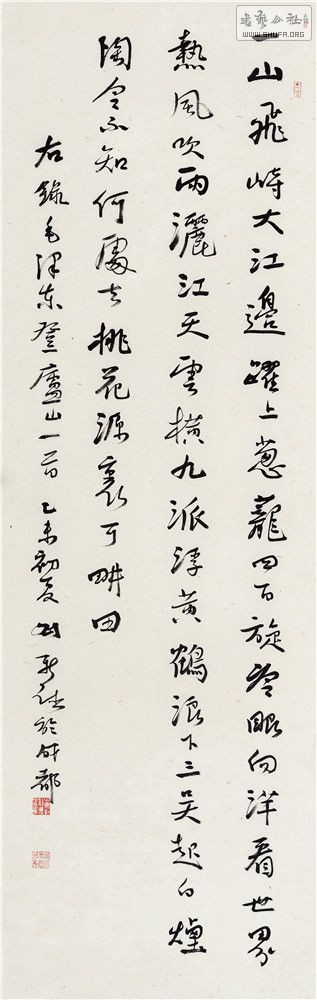 書藝公社
WWW.SHUFA.ORG
一山飛峙大江邊躍上蔥蘢四百旋冷眼向洋看世界
熱風吹雨灑江天雲橫九派浮黃鶴浪下三吴起白煙
陶令不知何處去桃花源裏可畊田
右録毛澤东登廬山一首乙未初夏於成都